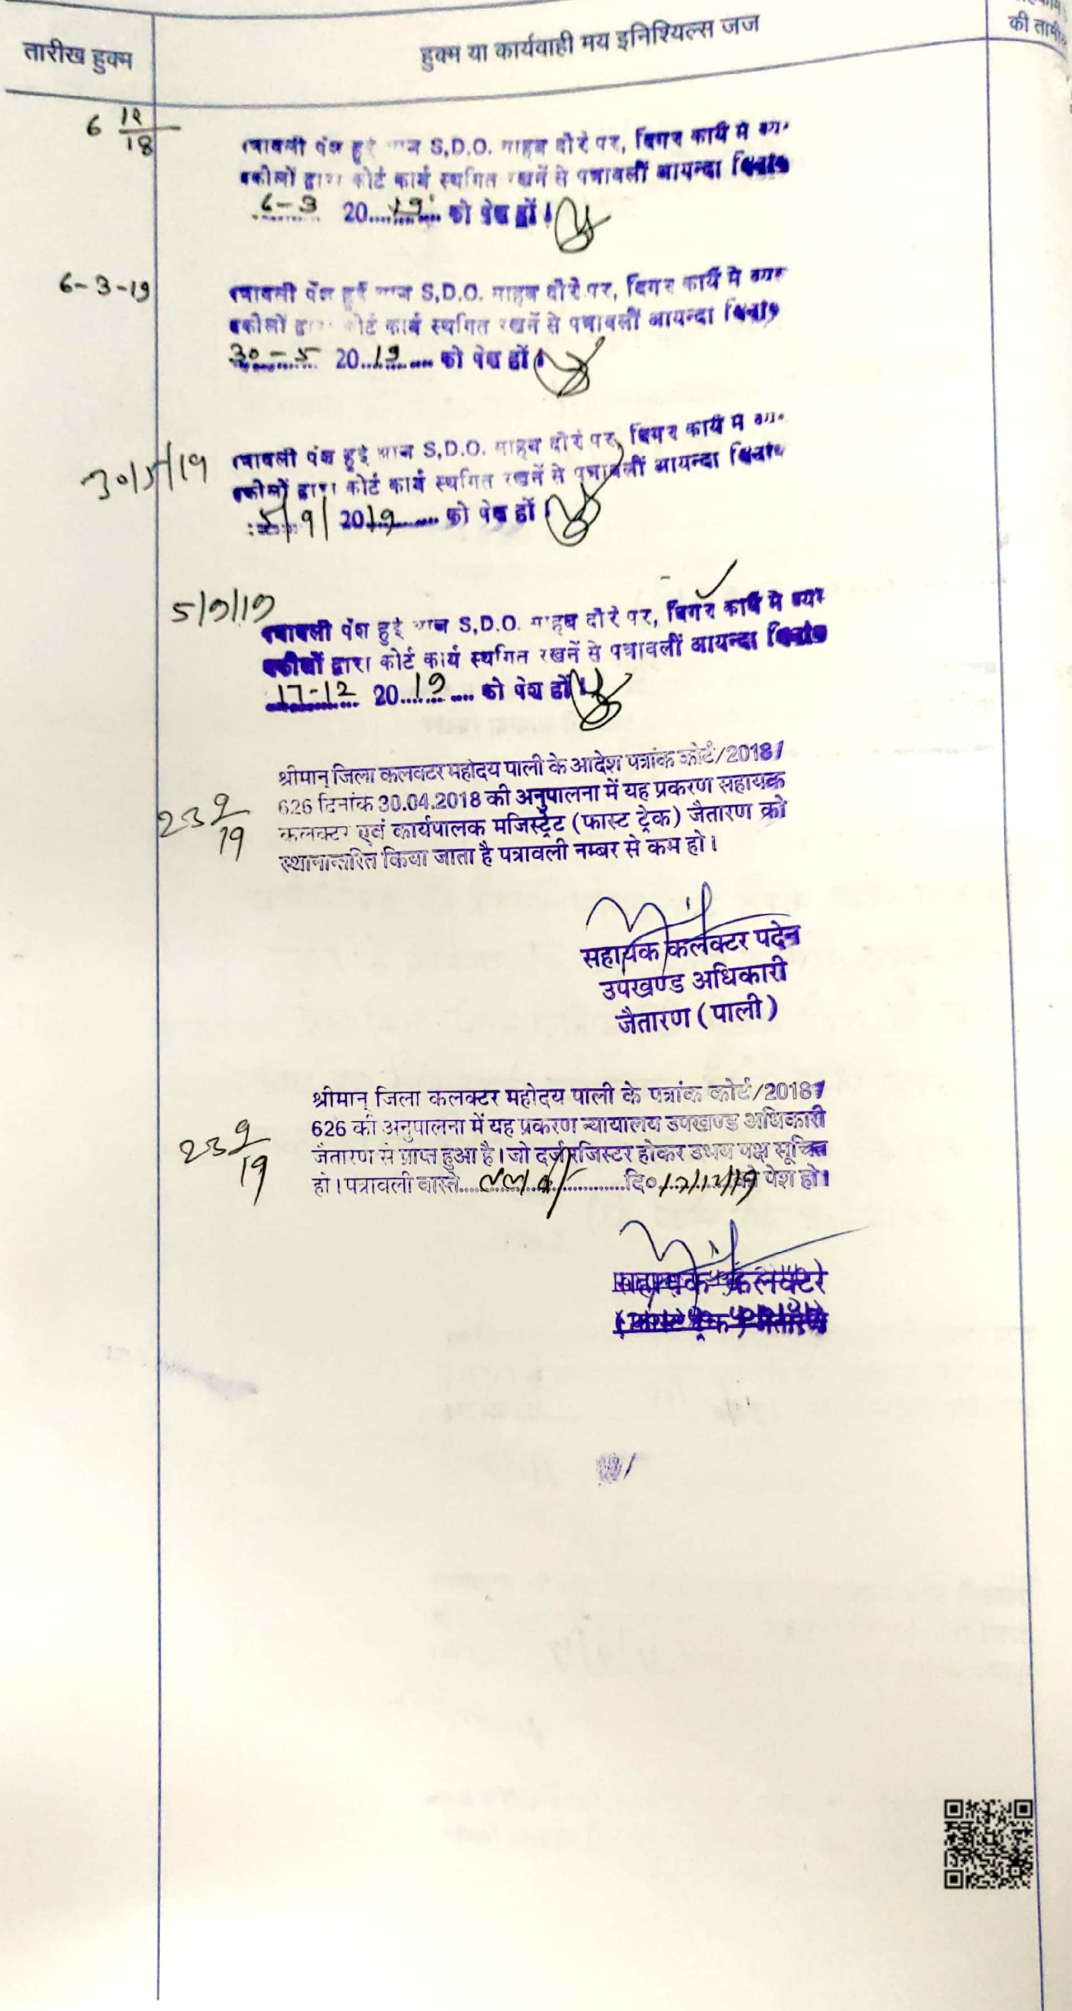 तारीख हुक्म
हुक्म या कार्यवाही मय इनिश्यिल्स जज
की
6 12/18
पत्रावली पेश हुई आज S.D.O. साहब दौरे पर, दिगर कार्य में
वकीलों द्वारा कोर्ट कार्य स्थगित रखनें से पत्रावलीं आयन्दा
6-3 20....19.... को पेश हों।
6-3-19
पत्रावली पेश हुई आज S.D.O. साहब दौरे पर, दिगर कार्य में
वकीलों द्वारा कोर्ट कार्य स्थगित रखनें से पत्रावलीं आयन्दा
30-5 20..19.... को पेश हों।
30/5/19
पत्रावली पेश हुई आज S.D.O. साहब दौरे पर, दिगर कार्य में
वकीलों द्वारा कोर्ट कार्य स्थगित रखनें से पत्रावलीं आयन्दा
5/9/ 2019...... को पेश हों।
5/9/19
पत्रावली पेश हुई आज S.D.O. साहब दौरे पर, दिगर कार्य में
वकीलों द्वारा कोर्ट कार्य स्थगित रखनें से पत्रावलीं आयन्दा
17-12 20...19.... को पेश हों।
श्रीमान् जिला कलक्टर महोदय पाली के आदेश पत्रांक कोर्ट/2018/
23 9/19
626 दिनांक 30.04.2018 की अनुपालना में यह प्रकरण सहायक
कलक्टर एवं कार्यपालक मजिस्ट्रेट (फास्ट ट्रेक) जैतारण को
स्थानान्तरित किया जाता है पत्रावली नम्बर से कम हो।
सहायक कलक्टर पदेन
उपखण्ड अधिकारी
जैतारण (पाली)
श्रीमान् जिला कलक्टर महोदय पाली के पत्रांक कोर्ट/2018/
23 9/19
626 की अनुपालना में यह प्रकरण न्यायालय उपखण्ड अधिकारी
जैतारण से प्राप्त हुआ है। जो दर्ज रजिस्टर होकर उभय पक्ष सूचित
हो। पत्रावली वास्ते.................दि०.17/12/19 को पेश हो।
सहायक कलक्टर
(फास्ट ट्रेक) जैतारण